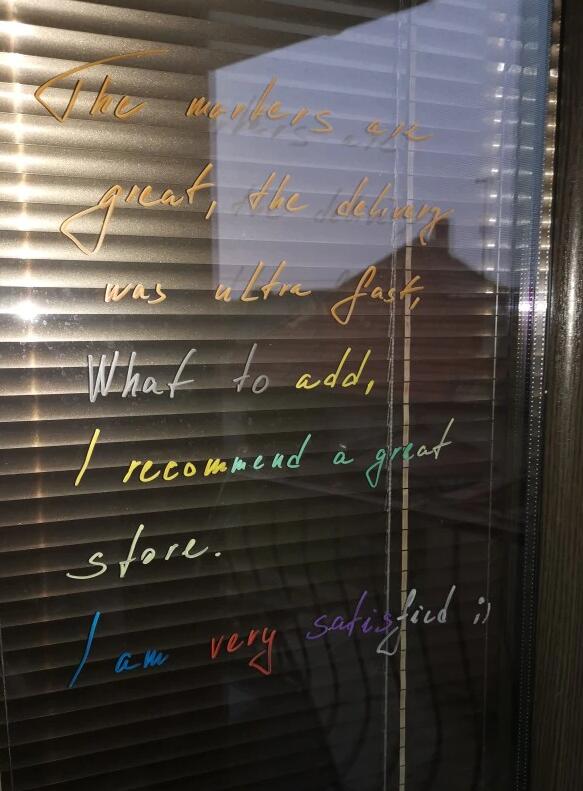 The markers are
great, the delivery
was ultra fast,
What to add,
I recommend a great
store.
I am very satisfied ;)